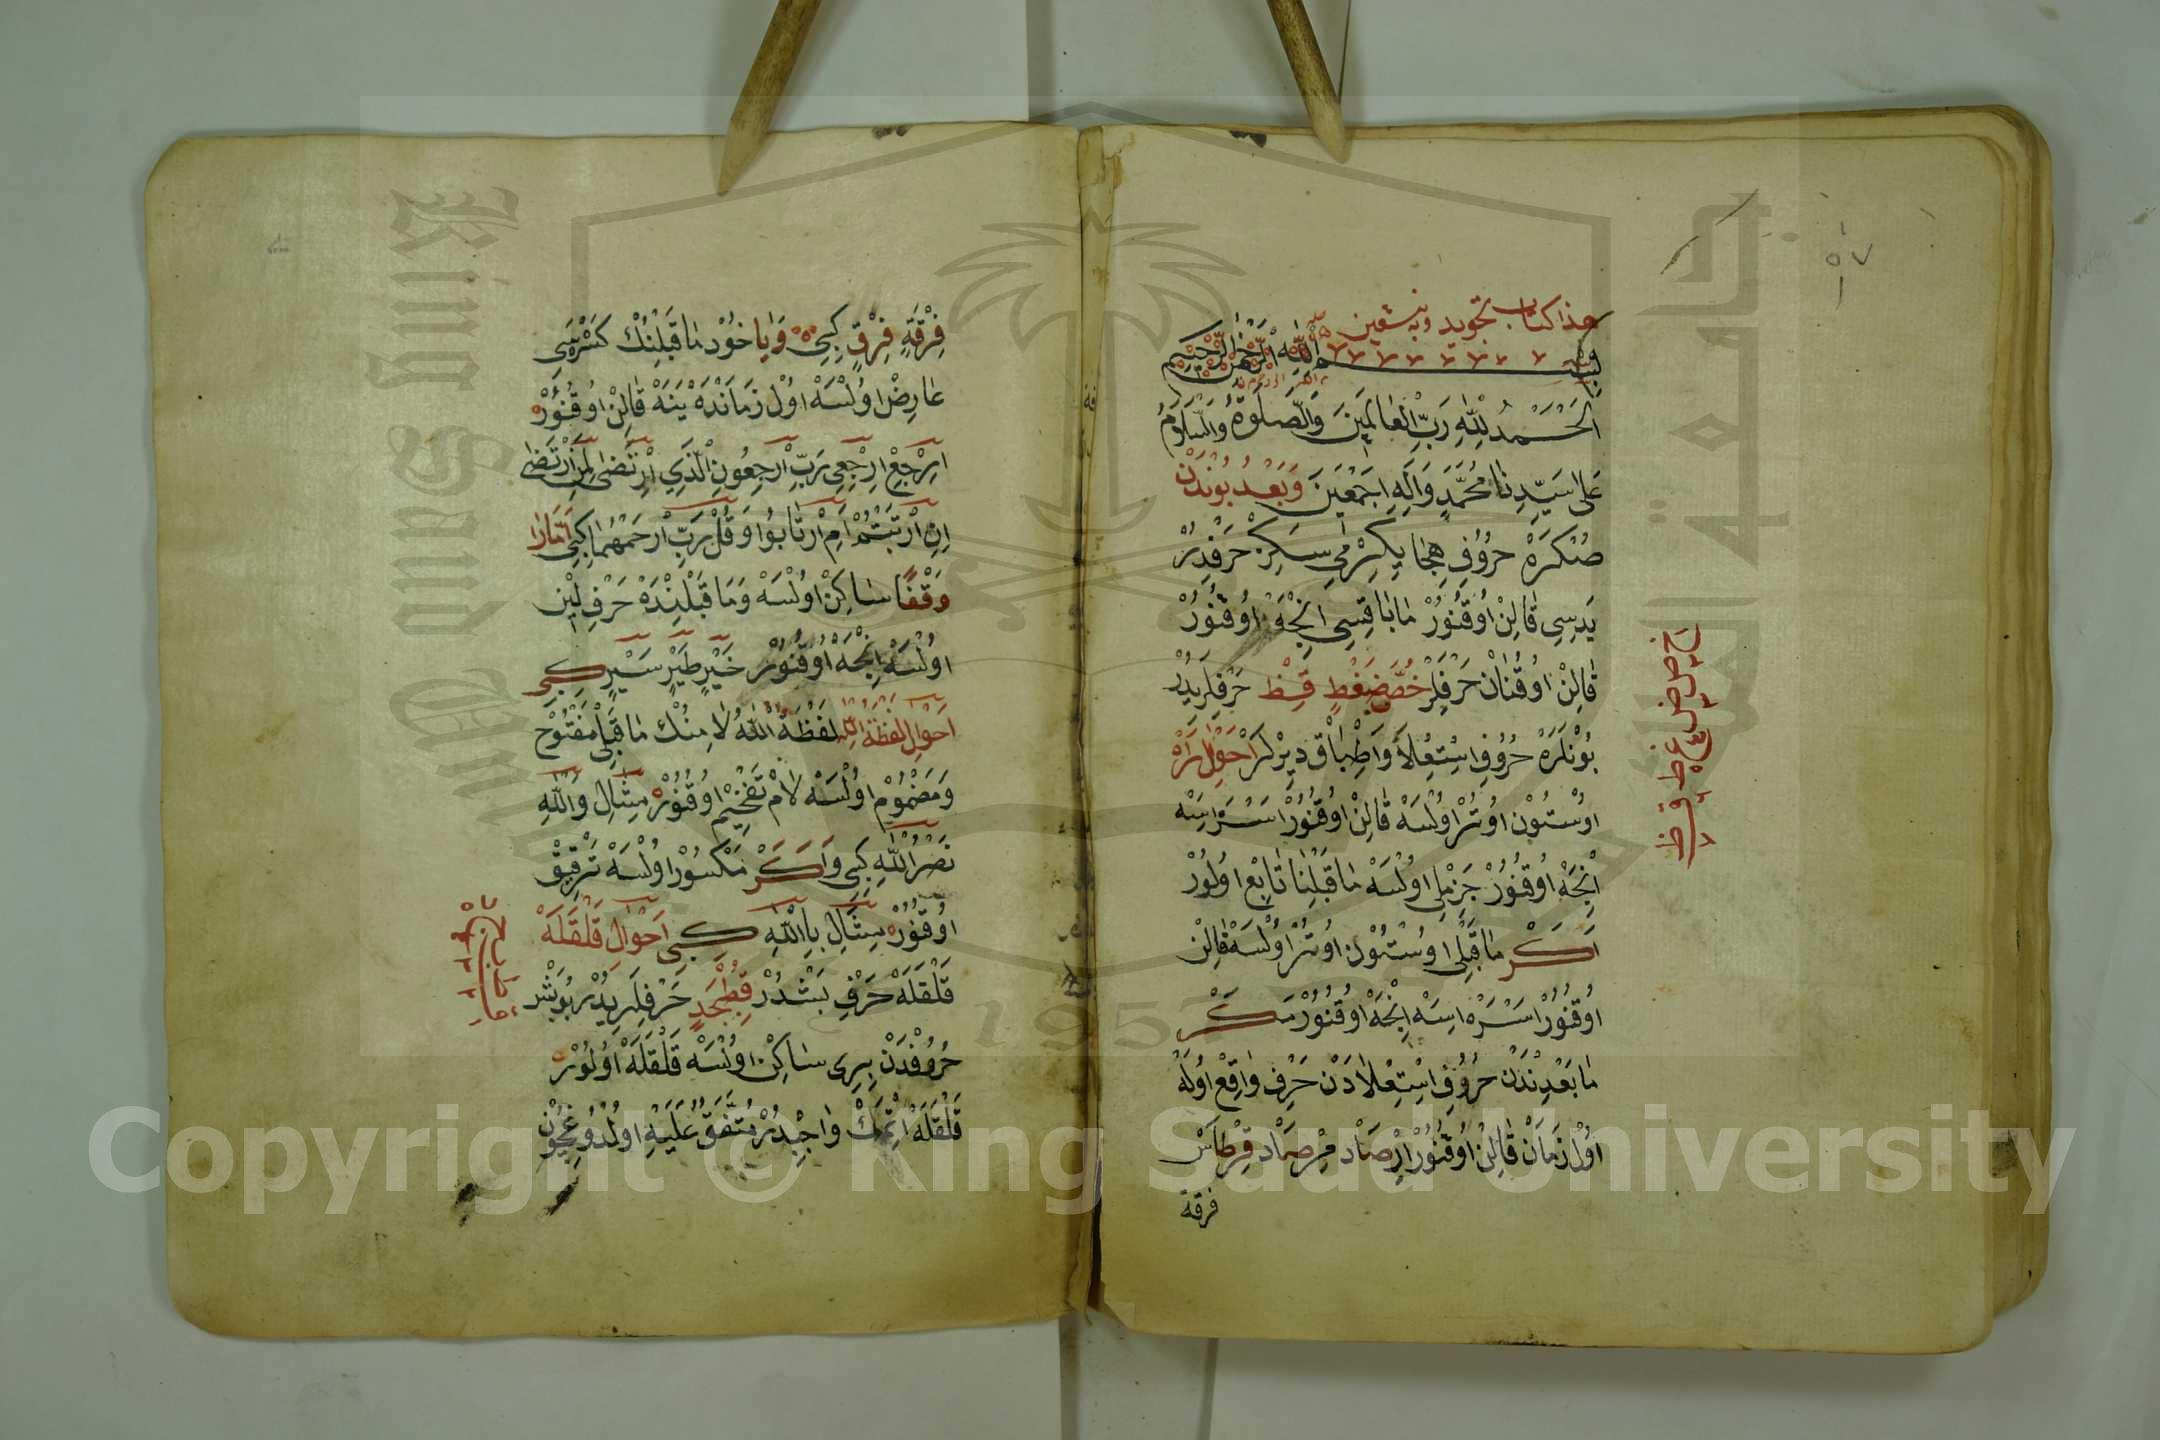 ٥٧
هذا كتاب تجويد
بسم الله الرحمن الرحيم
اَلْحَمْدُ لِلّٰهِ رَبِّ الْعَالَمِينَ وَالصَّلَوةُ وَالسَّلَامُ
عَلَى سَيِّدِنَا مُحَمَّدٍ وَاٰلِهِ اَجْمَعِينَ وَبَعْدُ بُونْدَنْ
صُنْكَرَهْ حروُفِ هِجَا يِكِرْمِي سَكِزْ حَرْفْدِرْ
يَدِسِى قَالِنْ اوُقُنُورْ مَابَاقِسِى اِنْجَهْ اوُقُنُورْ
قَالِنْ اوُقُنَانْ حَرْفِلَرْ خُصَّ ضَغْطٍ قِظْ حَرْفِلَرِيدُرْ
بُونْلَرَهْ حُرُوفِ اِسْتِعْلَا وَاِطْبَاق دِيرْلَرْ اَحْوَالِ رَا رَا
اوُسْتُونْ اوُتُرْ اوُلْسَهْ قَالِنْ اوُقُنُورْ اَسَرَا سَهْ
اِنْجَهْ اوُقُنُورْ جَزِمْلِى اوُلْسَهْ مَاقَبْلِنَا تَابِعْ اوُلُورْ
اَكَرْ مَاقَبْلِى اوُسْتُونْ اوُتُرْ اوُلْسَهْ قَالِنْ
اوُقُنُورْ اَسَرَهْ اسَهْ اِنْجَهْ اوُقُنُورْ مَكَرْ
مَابَعْدِنْدَنْ حُرُوفِ اِسْتِعْلَادَنْ حَرْفِ وَاقِعْ اوُلَهْ
اوُلْ زَمَانْ قَالِنْ اوُقُنُورْ اِرْصَادْ مِرْصَادْ قِرْطَاسْ
فرقة
خ ص ض غ ط ق ظ
فِرْقَةٍ فِرْقٍ كِبِى وَيَا خُودْ مَاقَبْلِنِكْ كَسْرَسِى
عَارِضْ اوُلْسَهْ اوُلْ زَمَانْدَهْ يِنَهْ قَالِنْ اوُقُنُورْ
اِرْجِعْ اِرْجِعِى رَبِّ ارْجِعُونِ الَّذِي ارْتَضَى لِمَنِ ارْتَضَى
اِنِ ارْتَبْتُمْ اَمِ ارْتَابُوا وَقُلْ رَبِّ ارْحَمْهُمَا كِبِى اَمَّا رَا
وَقْفًا سَاكِنْ اوُلْسَهْ وَمَا قَبْلِنْدَهْ حَرْفِ لِينْ
اوُلْسَهْ اِنْجَهْ اوُقُنُورْ خَيْرٍ طَيْرٍ سَيْرٍ كِبِى
اَحْوَالِ لَفْظَةُ اللّٰه لَفْظَةُ اللّٰهْ لَامِنُكْ مَاقَبْلِى مَفْتُوحْ
وَمَضْمُومْ اوُلْسَهْ لَامْ تَفْخِيمْ اوُقُنُورْ مِثَالِ وَاللّٰهِ
نَصْرُ اللّٰهِ كِبِى وَاَكَرْ مَكْسُورْ اوُلْسَهْ تَرْقِيقْ
اوُقُنُورْ مِثَالِ بِاللّٰهِ كِبِى اَحْوَالِ قَلْقَلَهْ
قَلْقَلَهْ حَرْفِ بَشْدُرْ قُطْبُجَدٍ حَرْفِلَرِيدُرْ بُوبَشْ
حُرُوفْدَنْ بِرِى سَاكِنْ اوُلْسَهْ قَلْقَلَهْ اوُلُورْ
قَلْقَلَهْ اِتْمَكْ وَاجِبْدُرْ مُتَّفَقٌ عَلَيْهِ اوُلْدُوغِيچُونْ
Copyright © King Saud University
King Saud University
جامعة الملك سعود
1957